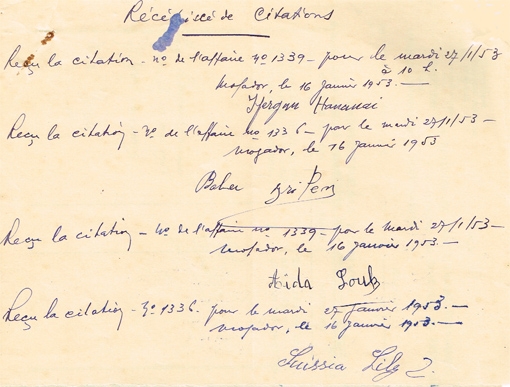 Récépissé de Citations
Reçu la citation - no de l'affaire no 1339 - pour le mardi 27/1/53
à 10 h.
Mogador, le 16 Janvier 1953. —
Hananiai
Reçu la citation - no de l'affaire no 1336 - pour le mardi 27/1/53 —
Mogador, le 16 Janvier 1953
Reçu la citation - no de l'affaire no 1339 - pour le mardi 27/1/1953 —
Mogador, le 16 Janvier 1953 —
Aida
Reçu la citation - no 1336 pour le mardi 27 janvier 1953. —
Mogador, le 16 janvier 1953. —
Suissia